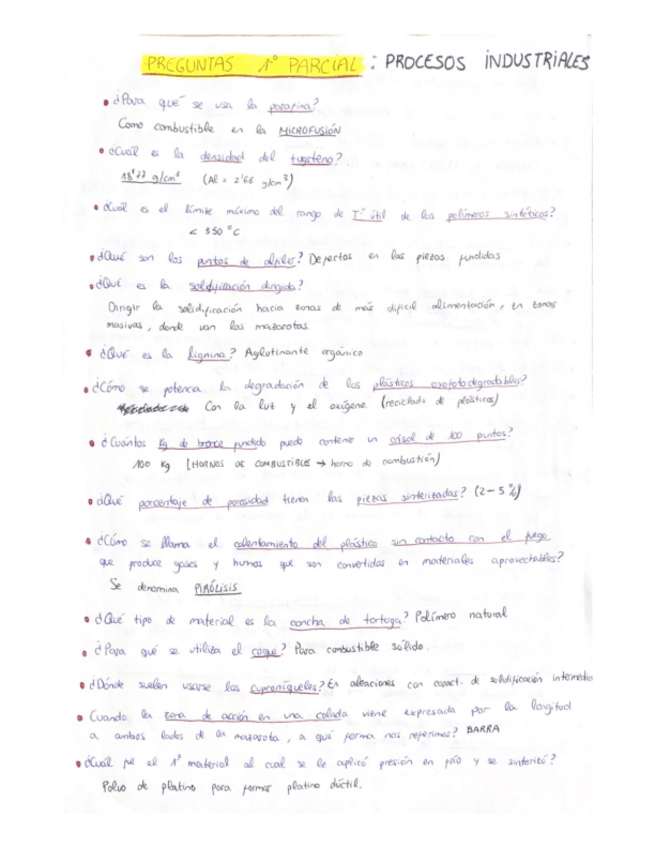 PREGUNTAS 1º PARCIAL : PROCESOS INDUSTRIALES
• ¿Para qué se usa la parafina?
Como combustible en la MICROFUSIÓN
• ¿Cuál es la densidad del tugsteno?
18'77 g/cm³ (Al = 2'66 g/cm³)
• ¿Cuál es el límite máximo del rango de Tº útil de los polímeros sintéticos?
< 350 ºC
• ¿Qué son los puntos de alfiler? Defectos en las piezas fundidas
• ¿Qué es la solidificación dirigida?
Dirigir la solidificación hacia zonas de más difícil alimentación, en zonas
masivas, donde van las mazarotas
• ¿Qué es la lignina? Aglotinante orgánico
• ¿Cómo se potencia la degradación de los plásticos oxofotodegradables?
Con la luz y el oxígeno. (reciclado de plásticos)
• ¿Cuántos Kg de bronce fundido puede contener un crisol de 100 puntos?
100 Kg [HORNOS DE COMBUSTIBLES → horno de combustión)
• ¿Qué porcentaje de porosidad tienen las piezas sinterizadas? (2-5 %)
• ¿Cómo se llama el calentamiento del plástico sin contacto con el fuego
que produce gases y humos que son convertidas en materiales aprovechables?
Se denomina PIRÓLISIS
• ¿Qué tipo de material es la concha de tortuga? Polímero natural
• ¿Para qué se utiliza el coque? Para combustible sólido.
• ¿Dónde suelen usarse los cuproníqueles? En aleaciones con caract. de solidificación intermedia
• Cuando la zona de acción en una colada viene expresada por la longitud
a ambos lados de la mazarota, a qué forma nos referimos? BARRA
• ¿Cuál fue el 1º material al cual se le aplicó presión en frío y se sinterizó?
Polvo de platino para formar platino dúctil.